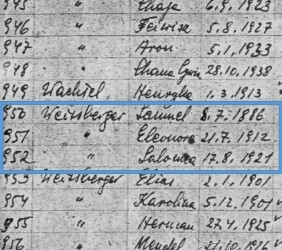 945 " Chaja 6.9.1923
946 " Feiwisz 5.8.1927
947 " Aron 5.1.1933
948 " 28.10.1938
949 Wachtel Henryka 1.3.1913
950 Weitsberger Samuel 8.7.1886
951 " Eleonora 21.7.1912
952 " Salomea 17.8.1921
953 Weitsberger Elias 2.1.1901
954 " Karolina 5.12.1901
955 " Herman 27.4.1925
956 " Mendel 21.10.1926